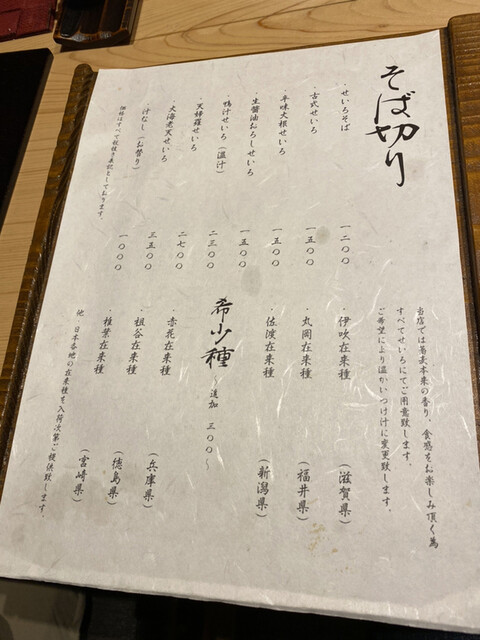 そば切り
・せいろそば 一二〇〇
・古式せいろ 一五〇〇
・辛味大根せいろ 一五〇〇
・生醤油おろしせいろ 一五〇〇
・鴨汁せいろ(温汁) 二三〇〇
・天婦羅せいろ 二七〇〇
・大海老天せいろ 三五〇〇
・汁なし(お替り) 一〇〇〇
価格はすべて税抜き表記としております。
当店では蕎麦本来の香り、食感をお楽しみ頂く為
すべてせいろにてご用意致します。
ご希望により温かいつけ汁に変更致します。
・伊吹在来種 (滋賀県)
・丸岡在来種 (福井県)
・佐渡在来種 (新潟県)
希少種 〜追加 三〇〇〜
・赤花在来種 (兵庫県)
・祖谷在来種 (徳島県)
・椎葉在来種 (宮崎県)
他 日本各地の在来種を入荷次第ご提供致します。